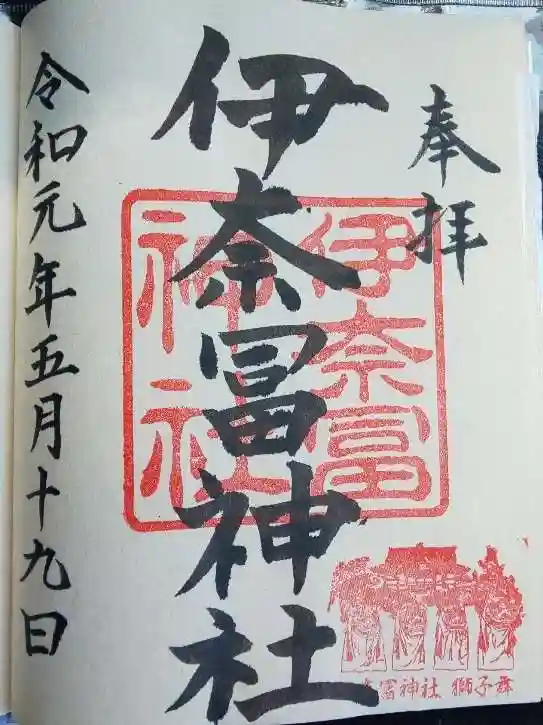 奉拝
伊奈冨神社
伊奈冨
神社
令和元年五月十九日
奈冨神社 獅子舞